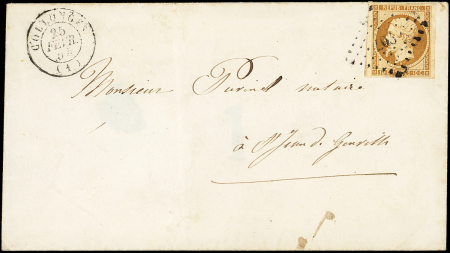 COLLONGES
25
FEVR
(1)
REPUB. FRANC.
Monsieur Perinet notaire
à St Jean de Gonville